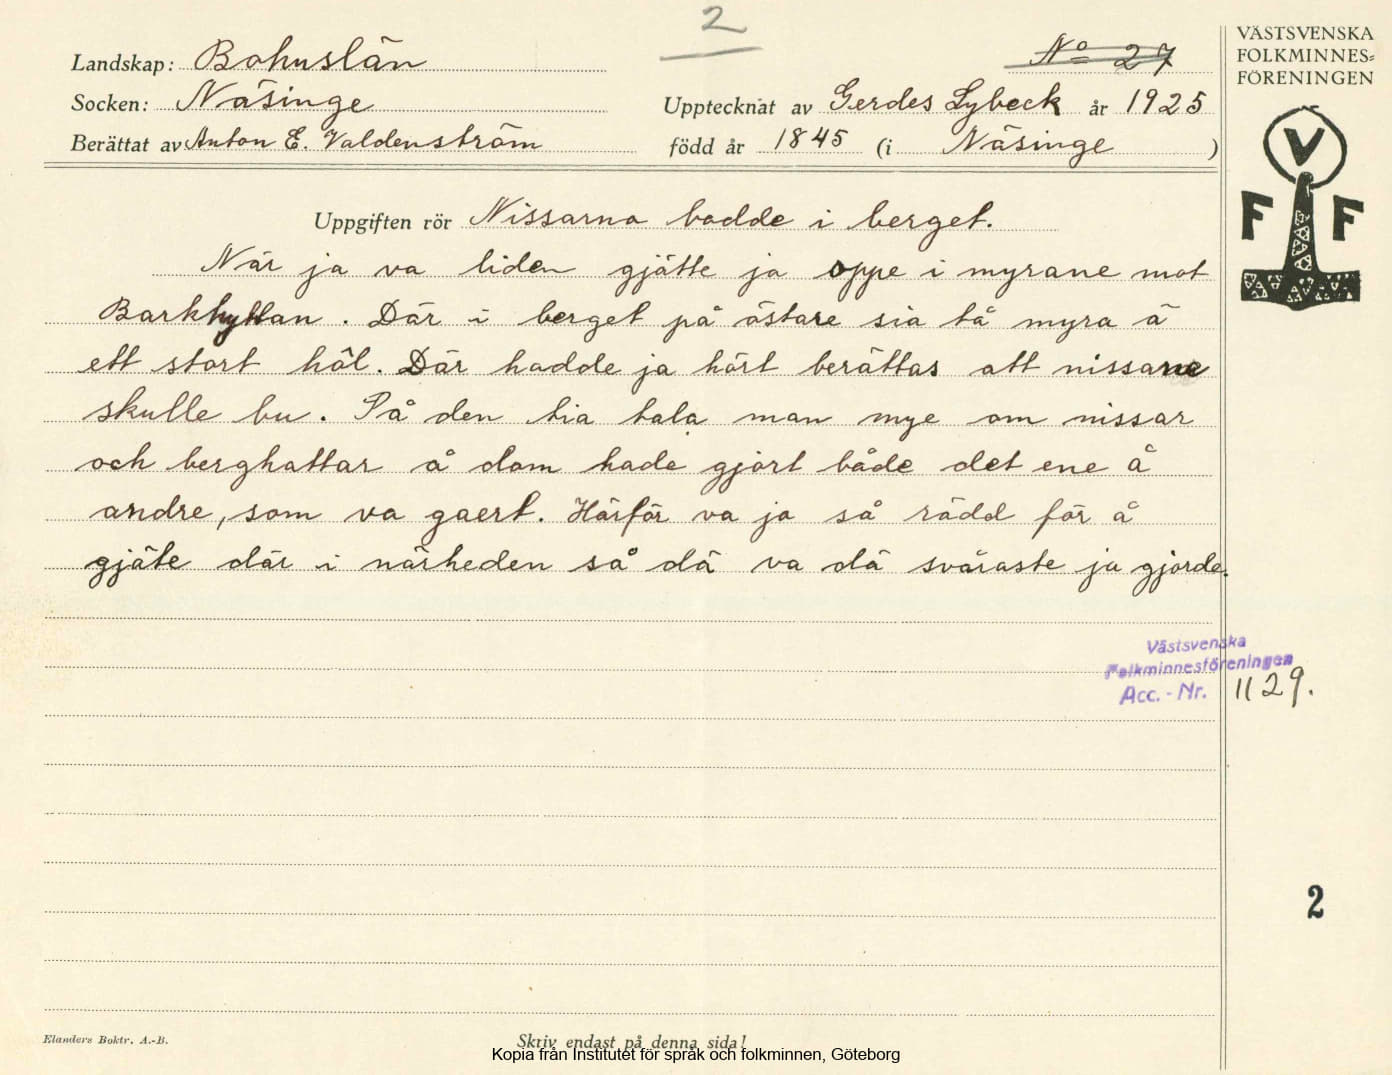 2
Landskap: Bohuslän
Nº 27
VÄSTSVENSKA
FOLKMINNES=
FÖRENINGEN
Socken: Näsinge
Upptecknat av Gerdes Lybeck år 1925
Berättat av Anton E. Valdenström
född år 1845 (i Näsinge )
V
F F
Uppgiften rör Nissarna bodde i berget.
När ja va liden gjätte ja oppe i myrane mot
Barkhyttan. Där i berget på östare sia tå myra ä
ett stort hôl. Där hadde ja hört berättas att nissane
skulle bu. På den tia tala man mye om nissar
och berghattar å dom hade gjort både det ene å
andre, som va gaert. Härför va ja så rädd för å
gjäte där i närheden så dä va dä svåraste ja gjorde.
Västsvenska
Folkminnesföreningen
Acc. - Nr. 1129.
2
Elanders Boktr. A.-B.
Skriv endast på denna sida!
Kopia från Institutet för språk och folkminnen, Göteborg